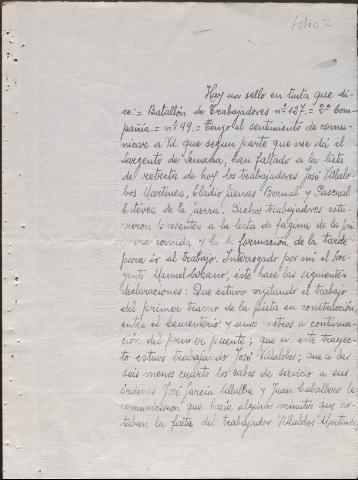 folio 2
Hay un sello en tinta que di-
ce: = Batallón de Trabajadores nº 127. = 2ª Com-
pañia. = nº 99. = Tengo el sentimiento de comu-
nicar a Vd. que segun parte que me dá el
Sargento de Semana, han faltado a la lista
de retreta de hoy los trabajadores José Villalo-
bos Martinez, Eladio Bernal y Pascual
Esteves de la Tierra. Dichos trabajadores estu-
vieron presentes a la lista de fagina de la pri-
mera comida y la de formación de la tarde
para ir al trabajo. Interrogado por mi el Sar-
gento Manuel Lobano, este hace las siguientes
declaraciones: Que estuvo vigilando el trabajo
del primer tramo de la pista en construcción,
entre el Cementerio y unos metros a continua-
ción del primer puente; que en este trayec-
to estuvo trabajando José Villalobos; que a las
seis menos cuarto los cabos de servicio a sus
órdenes José Garcia Villalba y Juan Caballero le
comunicaron que hacía algunos minutos que no-
taban la falta del trabajador Villalobos Martinez,